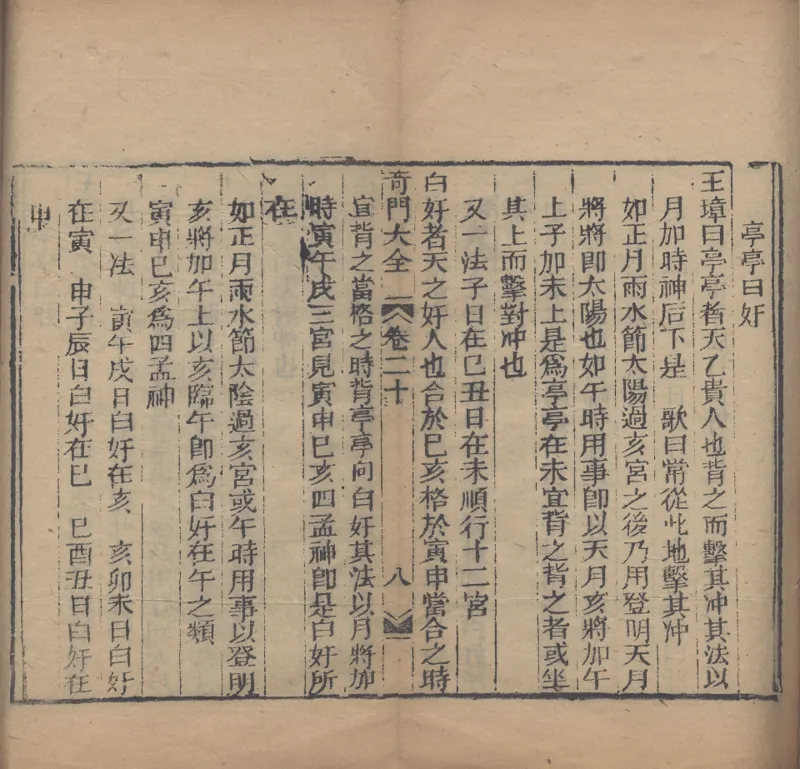 亭亭白奸
王璋曰亭亭者天乙貴人也背之而擊其冲其法以
月加時神后下是　歌曰常從此地擊其冲
如正月雨水節太陽過亥宮之後乃用登明天月
將將卽太陽也如午時用事卽以天月亥將加午
上子加未上是爲亭亭在未宜背之背之者或坐
其上而擊對冲也
又一法子日在巳丑日在未順行十二宮
白奸者天之奸人也合於巳亥格於寅申當合之時
奇門大全　卷二十　八
宜背之當格之時背亭亭向白奸其法以月將加
時寅午戌三宮見寅申巳亥四孟神卽是白奸所
在
如正月雨水節太陰過亥宮或午時用事以登明
亥將加午上以亥臨午卽爲白奸在午之類
寅申巳亥爲四孟神
又一法　寅午戌日白奸在亥　亥卯未日白奸
在寅　申子辰日白奸在巳　巳酉丑日白奸在
申